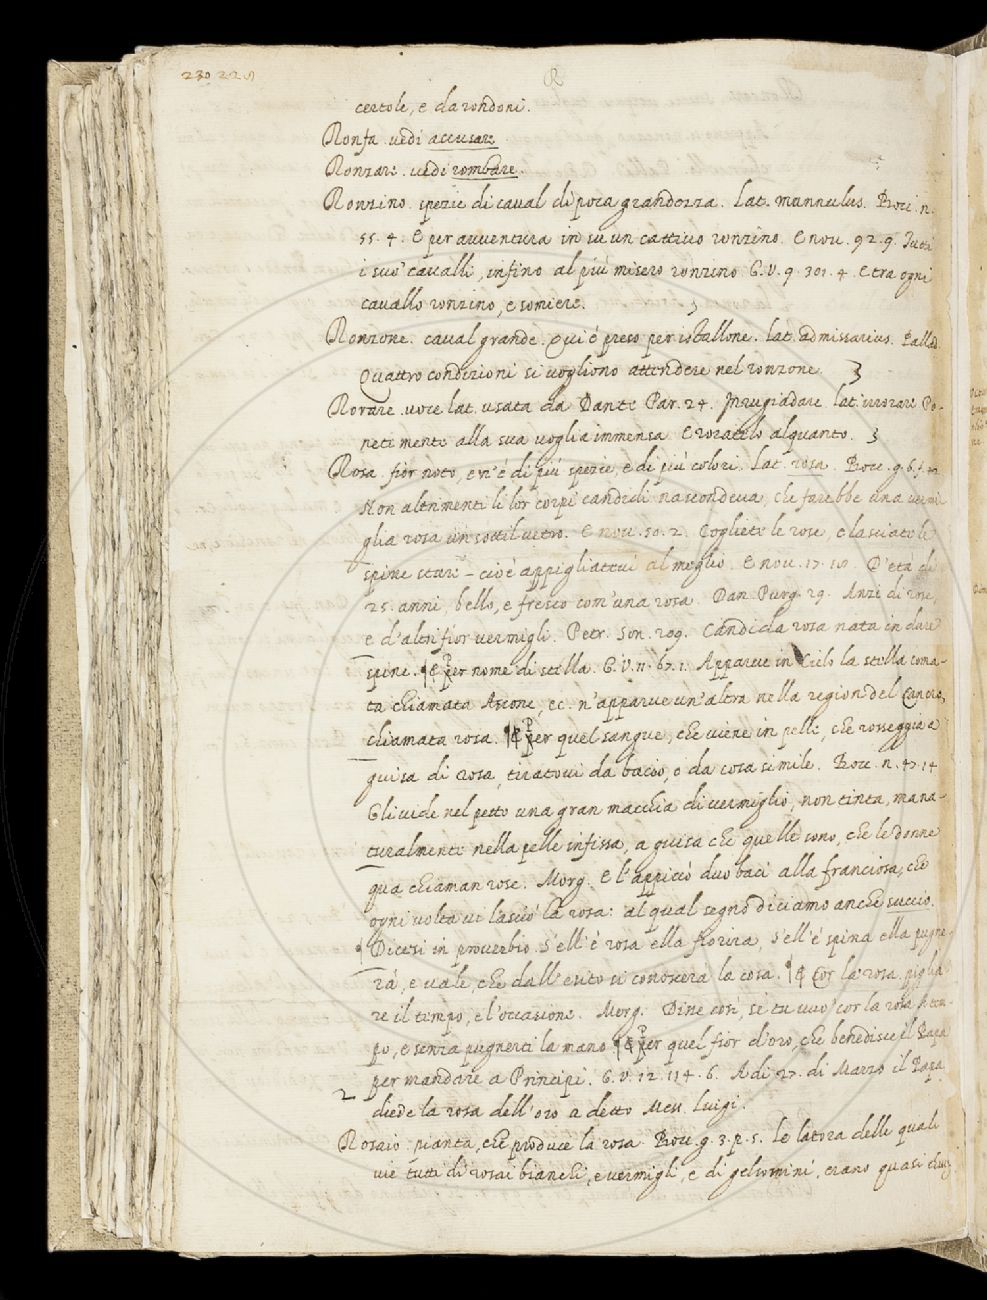 230 229
R
certole, e da rondoni.
Ronfa. vedi accusare
Ronzare. vedi rombare.
Ronzino. spezie di caval di poca grandezza. Lat. mannulus. Bocc. n.
55. 4. E per avventura in su un cattivo ronzino. E nov. 92. 9. Tutti
i suo' cavalli, infino al più misero ronzino. G. V. 9. 301. 4. E tra ogni
cavallo ronzino, e somiere.
Ronzone. caval grande. Qui è preso per istallone. Lat. admissarius. Pallad.
Quattro condizioni si vogliono attendere nel ronzone.
Rorare. voce lat. usata da Dante Par. 24. Inrugiadare. lat. irrorare. Po-
neti mente alla sua voglia immensa E roratelo alquanto.
Rosa. fior noto, e n'è di più spezie, e di più colori. Lat. rosa. Bocc. g. 6. f.
Non altrimenti li lor corpi candidi nascondeva, che farebbe una vermi-
glia rosa un sottil vetro. E nov. 50. 2. Cogliete le rose, e lasciate le
spine stare - cioè appigliatevi al meglio. E nov. 17. D'età di
25. anni, bello, e fresco com'una rosa. Dan. Purg. 29. Anzi di rose,
e d'altri fior vermigli. Petr. Son. 209. Candida rosa nata in dure
spine. ¶ Per nome di stella. G. V. 11. 67. 1. Apparve in Cielo la stella coma-
ta chiamata Ascone, ec. n'apparve un'altra nella region del Cancro,
chiamata rosa. ¶ Per quel sangue, che viene in pelle, che rosseggia a
guisa di rosa, tiratovi da bacio, o da cosa simile. Bocc. n. 47. 14
Gli vide nel petto una gran macchia di vermiglio, non tinta, ma na-
turalmente nella pelle infissa, a guisa che quelle sono, che le donne
qua chiaman rose. Morg. E l'appiccò duo baci alla franciosa, che
ogni volta vi lasciò la rosa: al qual segno diciamo anche succio.
¶ Dicesi in proverbio. S'ell'è rosa ella fiorirà, s'ell'è spina ella pugne-
rà, e vale, che dall'esito si conoscerà la cosa. ¶ Cor la rosa. piglia-
re il tempo, e l'occasione. Morg. Disse così, se tu vuo' cor la rosa A tem-
po, e senza pugnerti la mano ¶ Per quel fior d'oro, che benedisce il Papa
per mandare a Principi. G. V. 12. 114. 6. A di 27. di Marzo il Papa
2
diede la rosa dell'oro a detto Mess. Luigi.
Rosaio. pianta, che produce la rosa. Bocc. g. 3. p. 5. Le latora delle quali
vie tutte di rosai bianchi, e vermigli, e di gelsomini, erano quasi chiuse